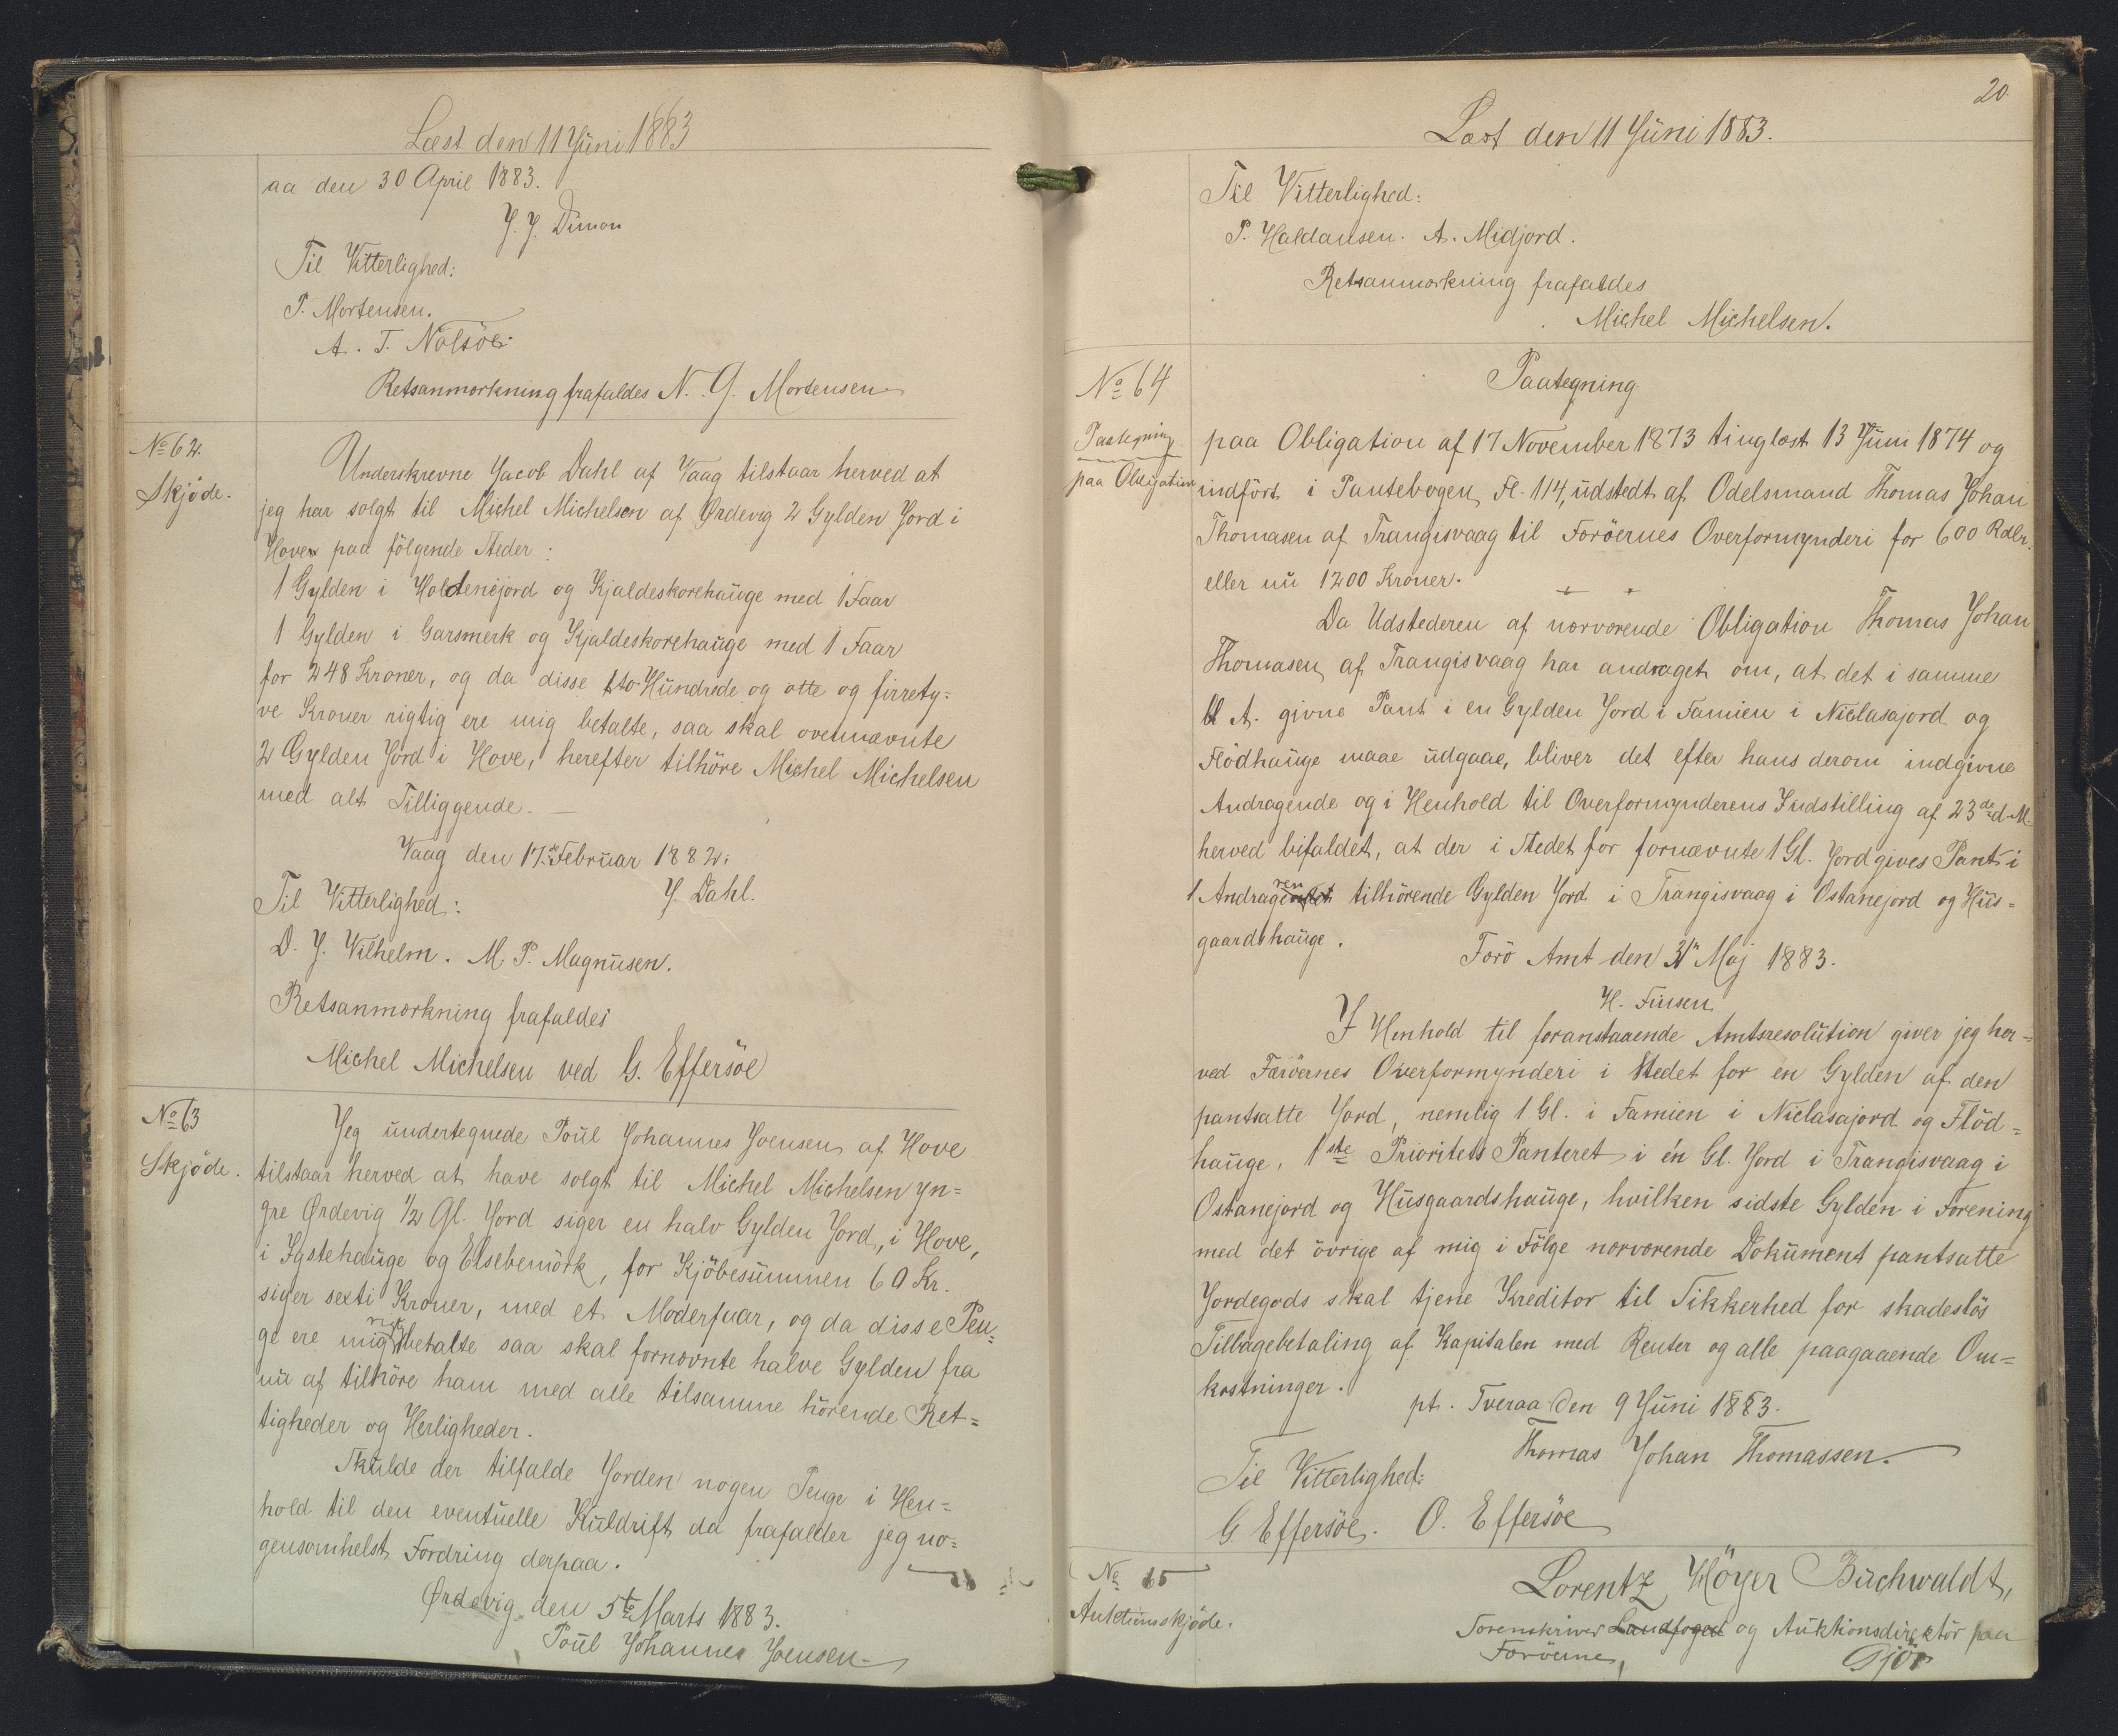 Læst den 11 Juni 1883
aa den 30 April 1883.
J. J. Dimon
Til Vitterlighed:
P. Mortensen.
A. T. Nolsöe.
Retsanmærkning frafaldes N. G. Mortensen
No 62.
Skjöde.
Underskrevne Jacob Dahl af Vaag tilstaar herved at
jeg har solgt til Michel Michelsen af Ørdevig 2 Gylden Jord i
Hove paa fölgende Steder:
1 Gylden i Holdenejord og Kjaldeskorehauge med 1 Faar
1 Gylden i Garsmerk og Kjaldeskorehauge med 1 Faar
for 248 Kroner, og da disse to Hundrede og otte og firrety=
ve Kroner rigtig ere mig betalte, saa skal ovennævnte
2 Gylden Jord i Hove, herefter tilhöre Michel Michelsen
med alt Tilliggende. —
Vaag den 17de Februar 1882.
J. Dahl.
Til Vitterlighed:
D. J. Vilhelm. M. P. Magnusen.
Retsanmærkning frafaldes
Michel Michelsen ved G. Effersöe
No 63
Skjöde.
Jeg undertegnede Poul Johannes Joensen af Hove
tilstaar herved at have solgt til Michel Michelsen yn=
gre Ørdevig 1/2 Gl. Jord siger en halv Gylden Jord, i Hove,
i Igstehauge og Elsebemörk, for Kjöbesummen 60 Kr.
siger sexti Kroner, med et Moderfaar, og da disse Pen=
ge ere mig betalte saa skal fornævnte halve Gylden fra
nu af tilhöre ham med alle tilsamme hörende Ret=
tigheder og Herligheder.
Skulde der tilfalde Jorden nogen Penge i Hen=
hold til den eventuelle Kuldrift da frafalder jeg no=
gensomhelst Fordring derpaa.
Ørdevig den 5te Marts 1883.
Poul Johannes Joensen
20.
Læst den 11 Juni 1883.
Til Vitterlighed:
P. Haldansen. A. Midjord.
Retsanmærkning frafaldes
Michel Michelsen.
No 64
Paategning
paa Obligation
Paategning
paa Obligation af 17 November 1873 tinglæst 13 Juni 1874 og
indfört i Pantebogen Fl. 114, udstedt af Odelsmand Thomas Johan
Thomasen af Trangisvaag til Færöernes Overformynderi for 600 Rdlr.
eller nu 1200 Kroner.
Da Udstederen af nærværende Obligation Thomas Johan
Thomasen af Trangisvaag har andraget om, at det i samme
A. givne Pant i en Gylden Jord i Famien i Niclasajord og
Flödhauge maae udgaae, bliver det efter hans derom indgivne
Andragende og i Henhold til Overformynderens Indstilling af 23de d. M.
herved bifaldet, at der i Stedet for fornævnte 1 Gl. Jord gives Pant i
1 Andrageren tilhörende Gylden Jord i Trangisvaag i Ostanejord og Hus=
gaardshauge.
Færö Amt den 31n Maj 1883.
H. Finsen
I Henhold til foranstaaende Amtsresolution giver jeg her=
ved Færöernes Overformynderi i Stedet for en Gylden af den
pantsatte Jord, nemlig 1 Gl. i Famien i Niclasajord og Flöd=
hauge, 1ste Prioritets Panteret i én Gl. Jord i Trangisvaag i
Ostanejord og Husgaardshauge, hvilken sidste Gylden i Forening
med det övrige af mig i Fölge nærværende Dokument pantsatte
Jordegods skal tjene Kreditor til Sikkerhed for skadeslös
Tilbagebetaling af Kapitalen med Renter og alle paagaaende Om=
kostninger.
pt. Tveraa den 9 Juni 1883.
Thomas Johan Thomassen.
Til Vitterlighed:
G. Effersöe. O. Effersöe
No 65
Auktionsskjöde.
Lorentz Höyer Buchwaldt,
Sorenskriver Landfoged og Auktionsdirektör paa
Færöerne,
Gjör